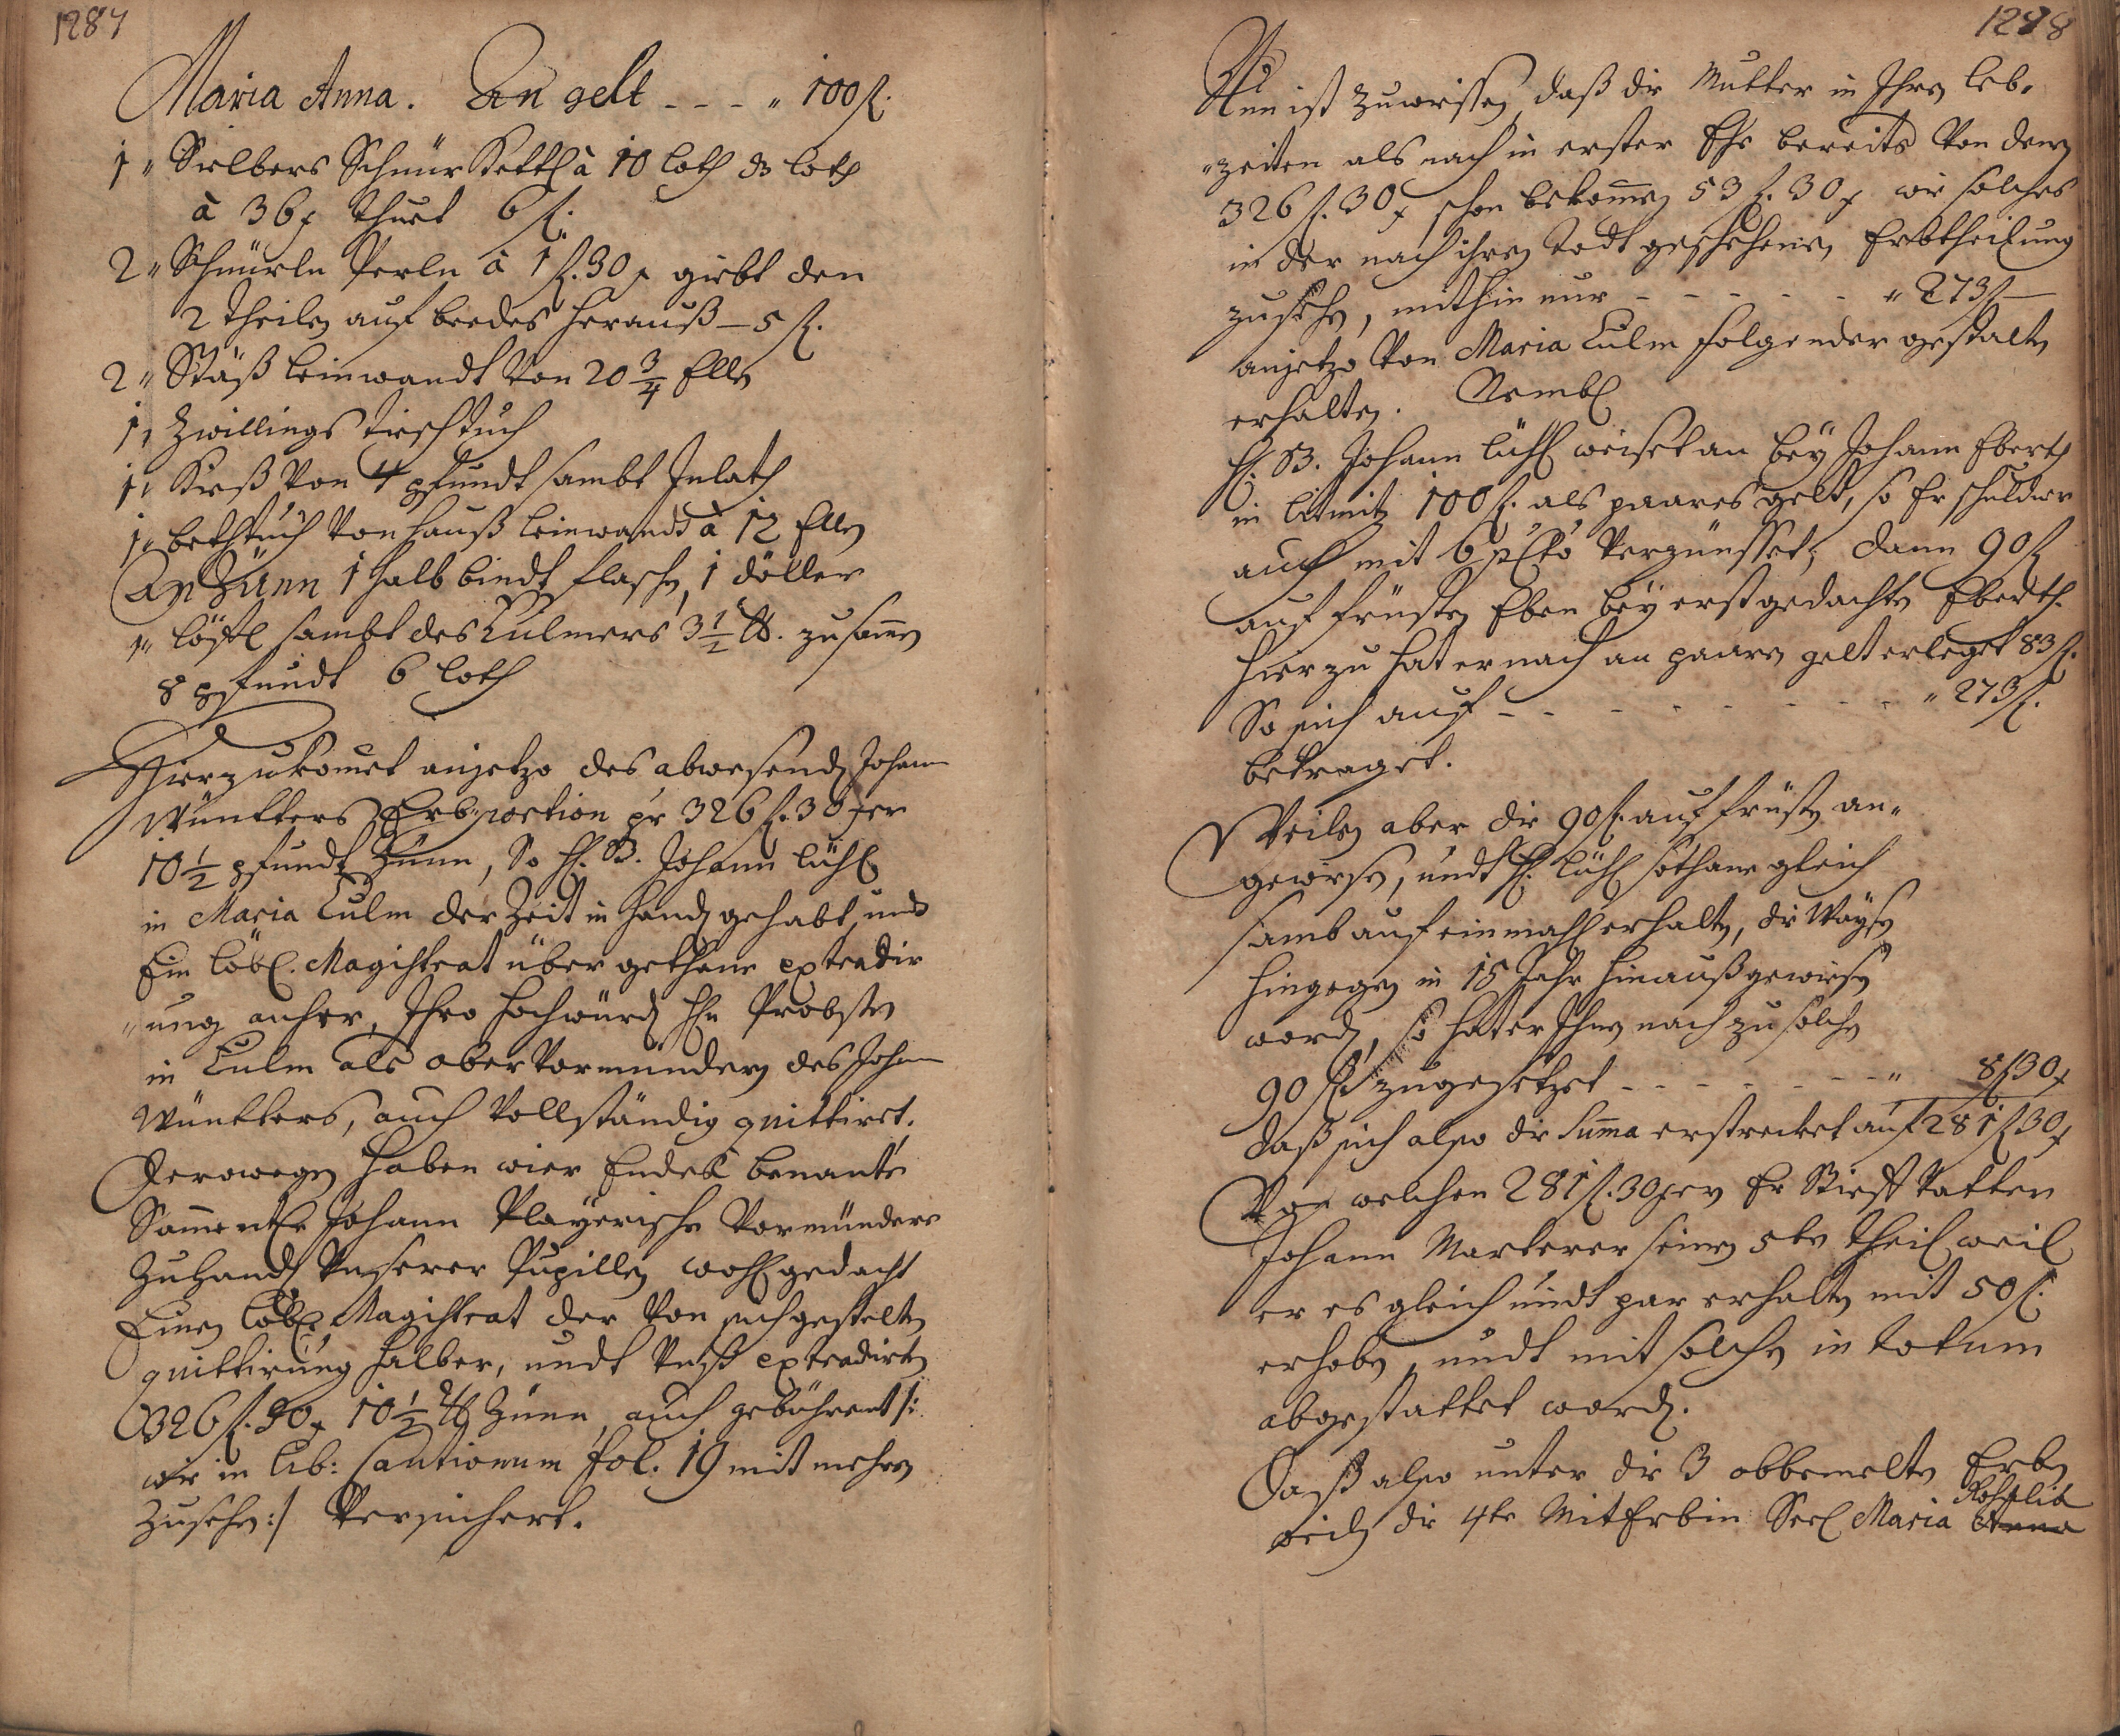 1287
Maria Anna. An gelt - - - „ 100 fl.
1„ Sielbers Schnür Kettl à 10 loth ds loth
à 36 x thuet 6 fl.
2„ Schnürln Perln à 1 fl. 30 x giebt den
2 theiln auf beedes herauß — 5 fl.
2„ Stäß leinwandt von 20 3/4 Elln
1„ Zwillings tischtuch
1„ Kieß von 4 pfundt sambt Inlath
1„ bethtuch von hauß leinwandt à 12 Elln
An Zünn 1 halb bindt flaschn, 1 döller
1„ löffl sambt des Culmers 3 1/2 lb. zusamn
8 pfundt 6 loth
Hierzu kommet anjetzo des abwesendn Johann
Wünkters Erb-portion pr 326 fl. 30 xer
10 1/2 pfundt Zünn, So H. B. Johann Lühl
in Maria Culm der Zeit in handn gehabt, und
Ein löbl. Magistrat über gethane extradir
„ung anher, Ihro Hochwürdn Hn Probstn
in Culm als obervormundern des Johann
Wünkters, auch vollständig quittiret.
Derowegn haben wier Endes benante
Sammentl. Johann Playerische Vormündere
Zuhandn Unserer Pupilln wohlgedacht
Einen löbl. Magistrat der von sich gestelten
quittirung halber, undt Unß extradirtn
326 fl. 30 x 10 1/2 lb Zünn, auch gebührent /:
wie in lib: Cautionum fol. 19 mit mehrern
Zusehn :/ Versichert.
1288
Nun ist Zuwissen, daß die Mutter in Ihrn leb-
„zeiten als nach in erster Ehe bereits von denen
326 fl. 30 x schon bekommen 53 fl. 30 x wie solches
in der nach ihren todt geschehenen Erbtheilung
zusehn, mithin nur - - - - - - „ 273 fl —
anjetzo von Maria Culm folgender gestaltn
erhaltn. Nembl
H. B. Johann Lühl weiset an bey Johann Eberth
in Litmitz 100 fl. als paares gelt, so Er schuldner
auch mit 6 p Cto verzünsset; dann 90 fl
auf früstn Eben bey erstgedachtn Eberth.
hierzu hat er nach an paarn gelt erleget 83 fl.
So sich auf - - - - - - - - - „ 273 fl.
betraget.
Weiln aber die 90 fl. auf früstn an-
gewiesn, undt H. Lühl sothane gleich
samb auf einmahl erhaltn, die Waysn
hingegn in 15 Jahr hinauß gewiesn
wordn, so hat er Ihnen nach zu solchn
90 fl. zugesetzet - - - - - - „ 8 fl 30 x
daß sich also die Suma erstrecket auf 281 fl 30 x
Von welchen 281 fl. 30 xer Er Stieff Vatter
Johann Markerer seinen 5ten theil weil
er es gleich undt par erhaltn mit 50 fl.
erhobn, undt mit solchn in totum
abgestattet wordn.
Daß also unter die 3 obbemelte Erbn
weiln die 4te Mit Erbin Seel Maria Anna Rosalia